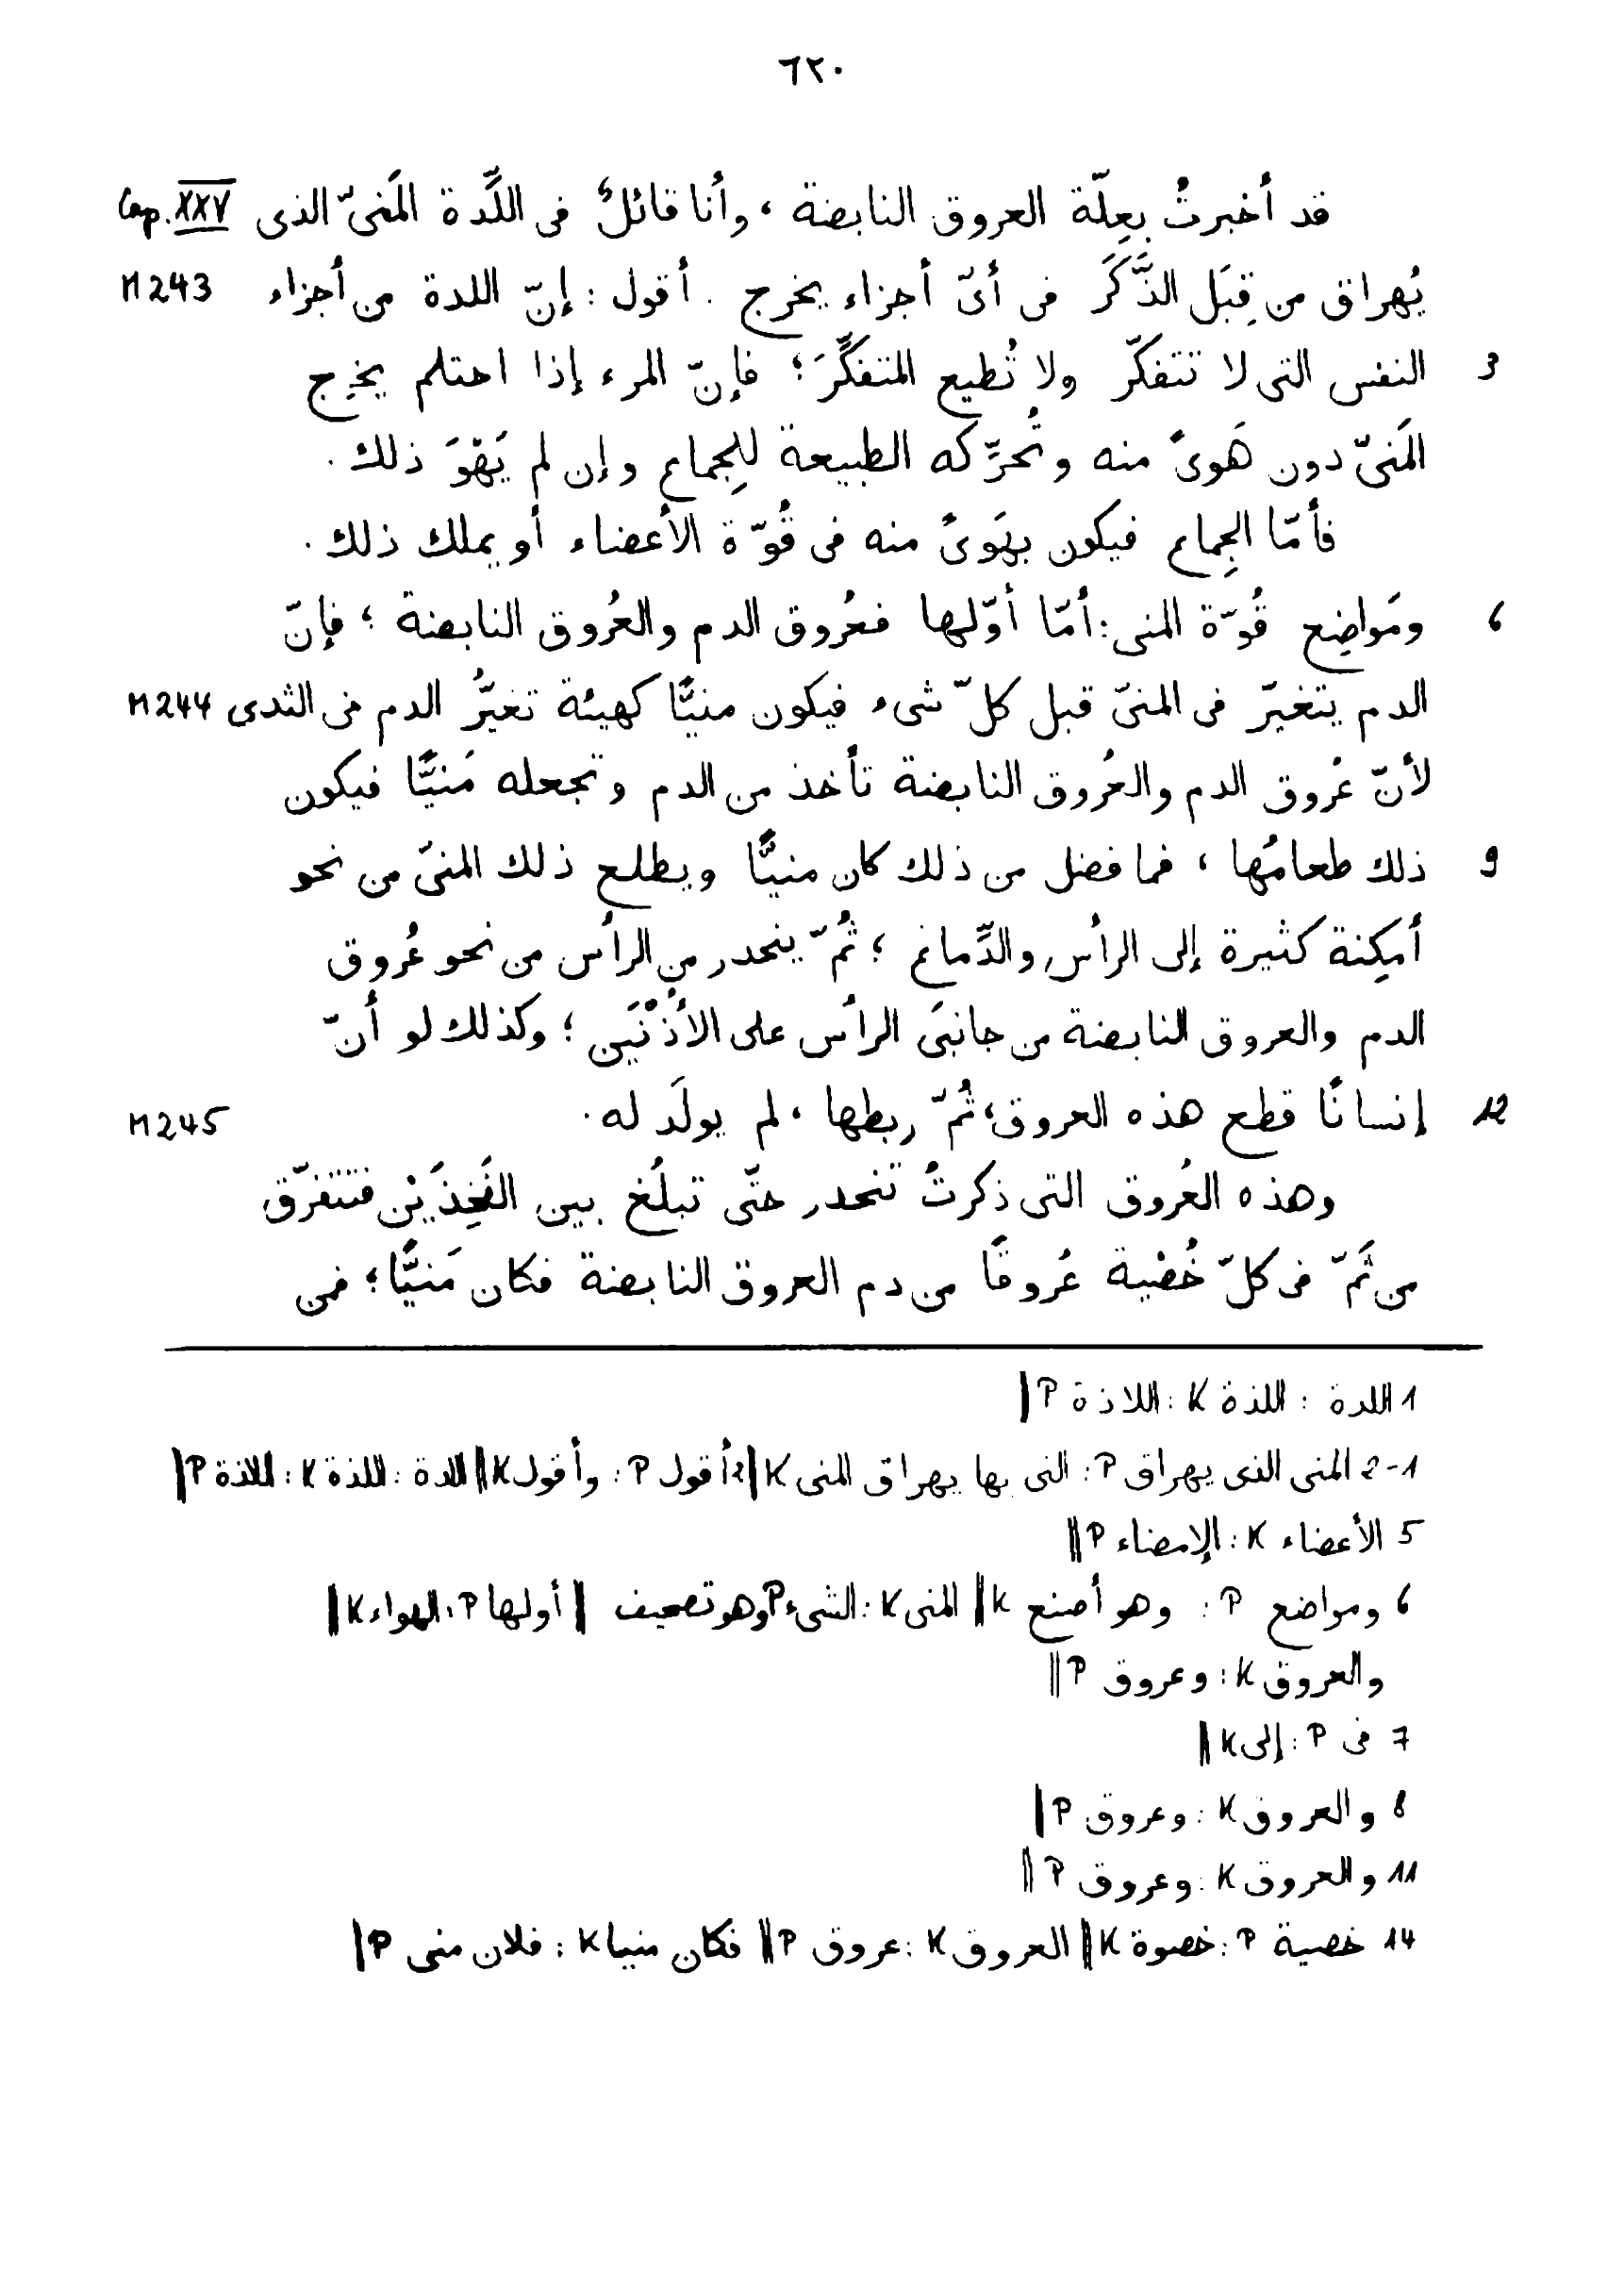 ٦٢٠
قد أخبرتُ بعِلّة العروق النابضة ، وأنا قائلٌ فى اللَّدة المَنىّ الذى Cap. XXV
يُهراق من قِبَل الذَّكَر فى أىّ أجزاء يخرج . أقول : إنّ اللدة من أجزاء M 243
3 النفس التى لا تتفكّر ولا تُطيع المتفكَّرَ ؛ فإنّ المرء إذا احتلم يخرِج
المَنىّ دون هَوىً منه وتُحرِّكه الطبيعة للجِماع وإن لم يَهْوَ ذلك .
فأمّا الجِماع فيكون بهَوىً منه فى قُوّة الأعضاء أو يملك ذلك .
6 ومَواضِع قُوّة المنى : أمّا أوّلها فعُروق الدم والعُروق النابضة ؛ فإنّ
الدم يتغيّر فى المنىّ قبل كلّ شىء فيكون منيًّا كهيئة تغيُّر الدم فى الثدى M 244
لأنّ عُروق الدم والعُروق النابضة تأخذ من الدم وتجعله مَنيًّا فيكون
9 ذلك طعامُها ، فما فضل من ذلك كان منيًّا ويطلع ذلك المنىّ من نحو
أمكِنة كثيرة إلى الرأس والدِّماغ ؛ ثُمّ ينحدر من الرأس من نحو عُروق
الدم والعروق النابضة من جانبَى الرأس على الأُذْنَيين ؛ وكذلك لو أنّ
12 إنسانًا قطع هذه العروق ، ثُمّ ربطها ، لم يولَد له . M 245
وهذه العُروق التى ذكرتُ تنحدر حتّى تبلُغ بين الفَخِذَيْن فتتفرّق
من ثَمّ فى كلّ خُصْية عُروقًا من دم العروق النابضة فكان مَنيًّا ؛ فمن
1 اللدة : اللذة K : اللاذة P |
1-2 المنى الذى يهراق P : التى بها يهراق المنى K | 2 أقول P : وأقول K || اللدة : اللذة K : اللاذة P |
5 الأعضاء K : الإمضاء P ||
6 ومواضع P : وهو أصنع K || المنى K : الشىء P وهو تصحيف || أولها P : الهواء K |
والعروق K : وعروق P ||
7 فى P : إلى K ||
8 والعروق K : وعروق P |
11 والعروق K : وعروق P ||
14 خصية P : خصوة K || العروق K : عروق P || فكان منيا K : فلان منى P |